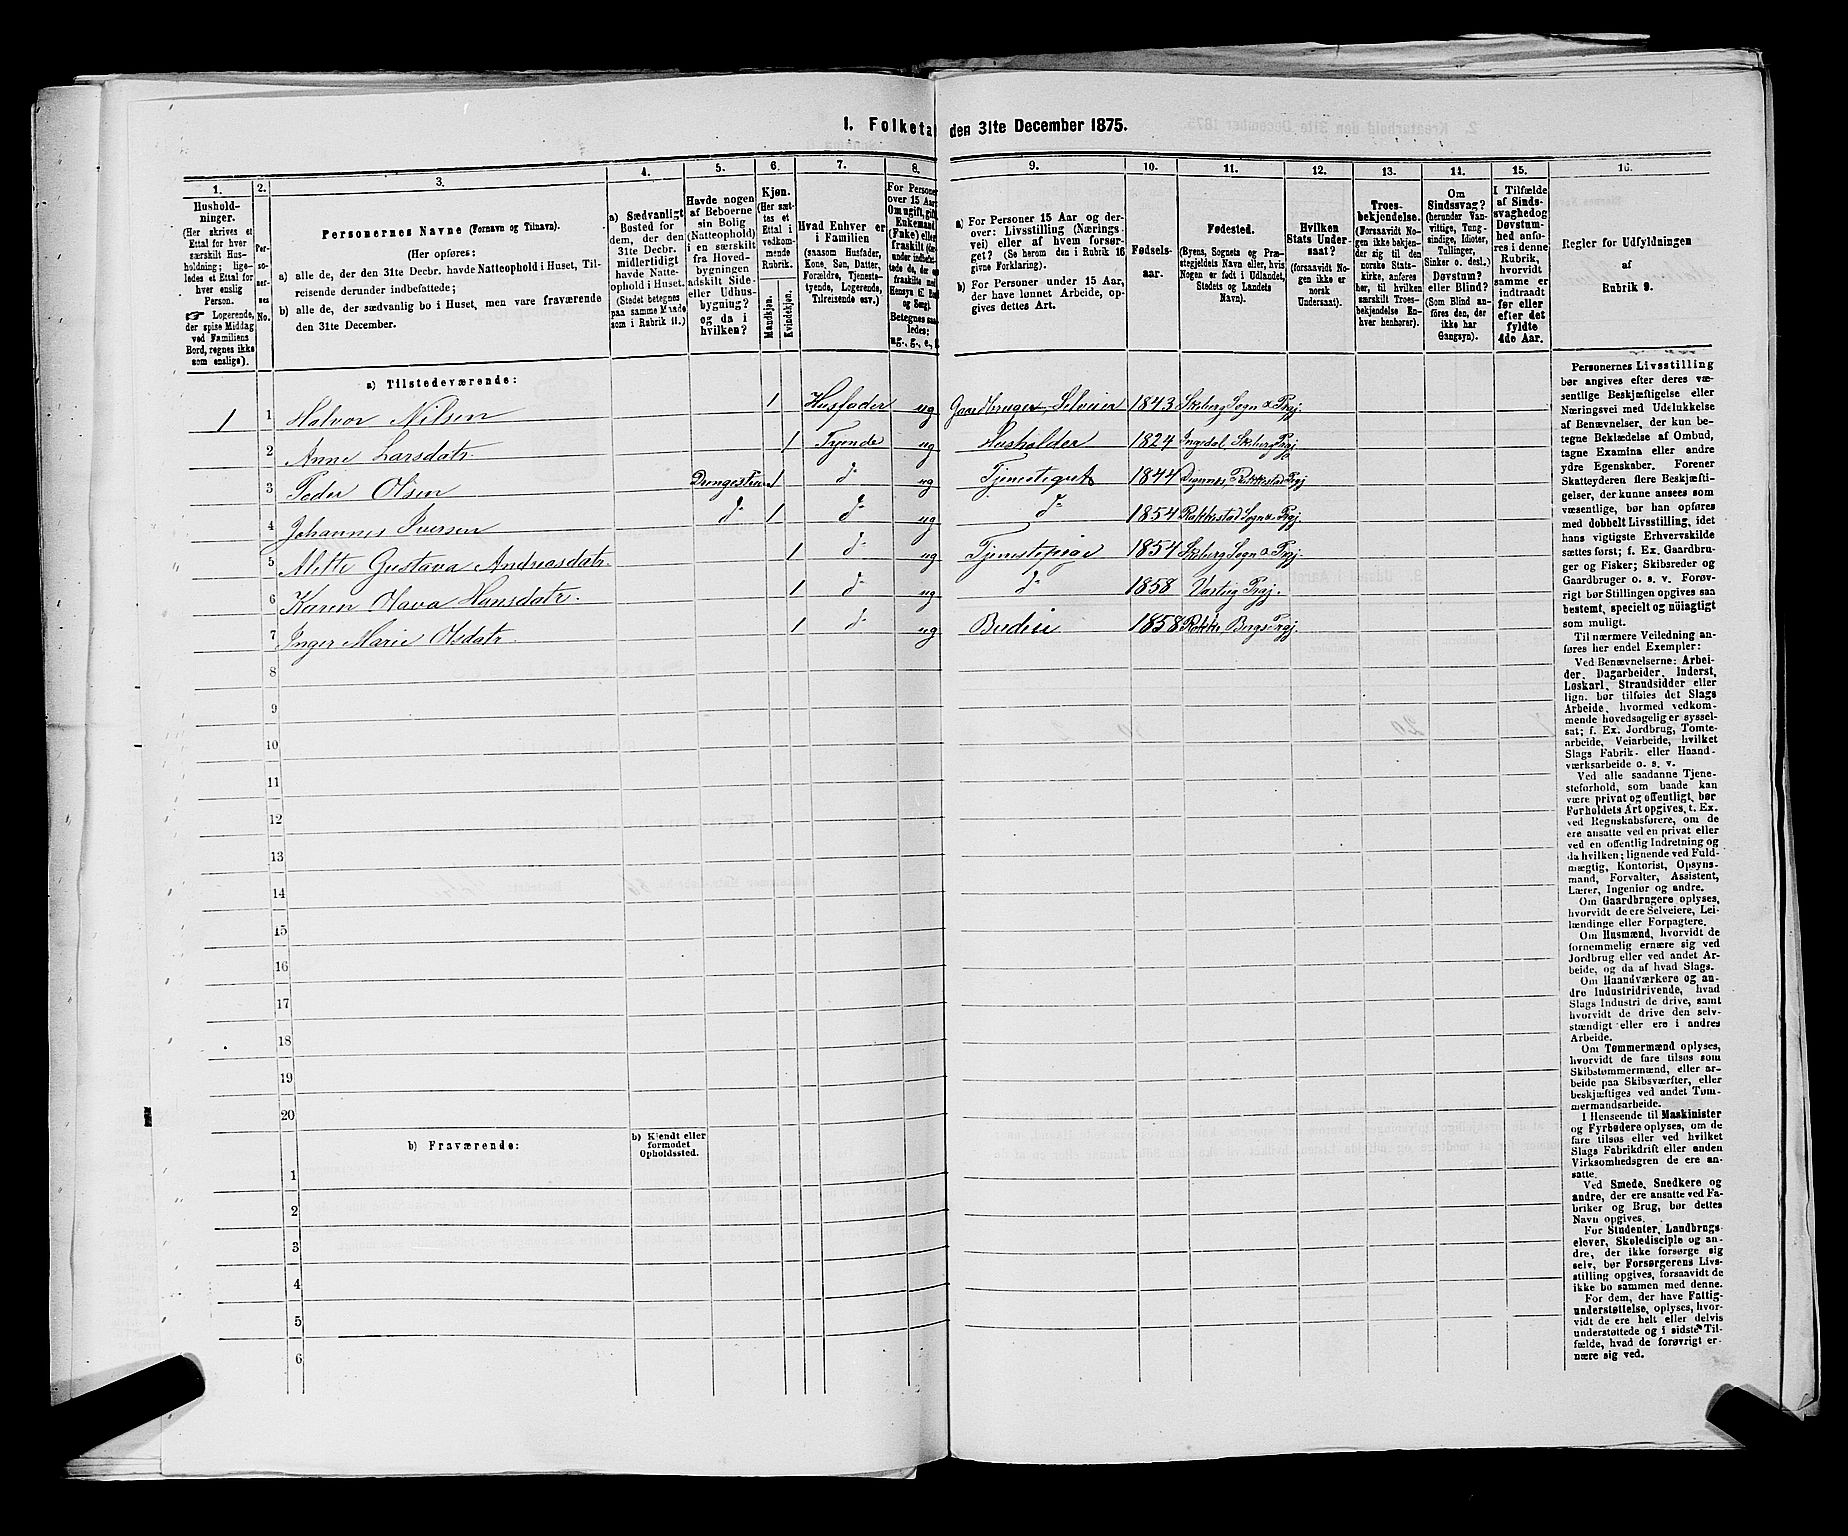 1. Folketal den 31te December 1875.
1.
2.
3.
4.
5.
6.
7.
8.
9.
10.
11.
12.
13.
14.
15.
16.
Hushold-
ninger.
(Her skrives et
Ettal for hver
særskilt Hus-
holdning; lige-
ledes et Ettal for
hver enslig
Person.
☞ Logerende,
der spise Middag
ved Familiens
Bord, regnes ikke
som enslige).
Per-
so-
ner-
nes
No.
Personernes Navne (Fornavn og Tilnavn).
(Her opføres:
a) alle de, der den 31te Decbr. havde Natteophold i Huset, Til-
reisende derunder indbefattede;
b) alle de, der sædvanlig bo i Huset, men vare fraværende
den 31te December.
a) Sædvanligt
Bosted for
dem, der den
31te Decbr.
midlertidigt
havde Natte-
ophold i Huset.
(Stedet betegnes
paa samme Maade
som i Rubrik 11.)
Havde nogen
af Beboerne
sin Bolig
(Natteophold)
i en særskilt
fra Hoved-
bygningen
adskilt Side-
eller Udhus-
bygning?
og da i
hvilken?
Kjøn.
(Her sæt-
tes et
Ettal i
vedkom-
mende
Rubrik.
Mandkjøn.
Kvindekjøn.
Hvad Enhver er
i Familien
(saasom Husfader,
Kone, Søn, Datter,
Forældre, Tjeneste-
tyende, Logerende,
Tilreisende osv.)
For Personer
over 15 Aar:
Om ugift, gift,
Enkemand
(Enke) eller
fraskilt
Betegnes saa-
ledes:
ug., g., e.,
a) For Personer 15 Aar og der-
over: Livsstilling (Nærings-
vei) eller af hvem forsør-
get? (Se herom den i Rubrik 16
givne Forklaring).
b) For Personer under 15 Aar,
der have lønnet Arbeide, op-
gives dettes Art.
Fødsels-
aar.
Fødested.
(Byens, Sognets og Præ-
stegjeldets Navn eller, hvis
Nogen er født i Udlandet,
Stedets og Landets
Navn).
Hvilken
Stats Under-
saat?
(forsaavidt No-
gen ikke er
norsk
Undersaat).
Troes-
bekjendelse.
(Forsaavidt No-
gen ikke bekjen-
der sig til den
norske Stats-
kirke, anføres
her, til hvilken
særskilt Troes-
bekjendelse En-
hver henhører).
Om
Sindssvag?
(herunder Van-
vittige, Tung-
sindige, Idioter,
Tullinger,
Sinker o. desl.)
Døvstum?
eller Blind?
(Som Blind an-
føres den, der
ikke har
Gangsyn).
I Tilfælde
af Sinds-
svaghed og
Døvstum-
hed anfø-
res i denne
Rubrik,
hvorvidt
samme er
indtraadt
før eller
efter det
fyldte
4de Aar.
Regler for Udfyldningen
af
Rubrik 9.
a) Tilstedeværende:
1 1 Halvor Nilsen 1 Husfader ug Gaardbruger, Selveier 1843 Skeberg Sogn & Prgj.
2 Anne Larsdatr 1 Tyende ug Husholder 1824 Ingedal, Skeberg Prgj
3 Peder Olsen 1 do ug Tjenestegut 1844 Degernes, Rakkestad Prgj
4 Johannes Iversen do 1 do ug do 1854 Rakkestad Sogn & Prgj.
5 Mette Gustava Andreasdatr. 1 do ug Tjenestepige 1854 Skeberg Sogn & Prgj.
6 Karen Olava Hansdatr. 1 do ug do 1858 Varteig Prgj.
7 Inger Marie Olsdatr 1 do ug Budeie 1858 Rokke, Bergs Prgj.
8
9
10
11
12
13
14
15
16
17
18
19
20
b) Fraværende:
b) Kjendt eller
formodet
Opholdssted.
1
2
3
4
5
6
Personernes Livsstilling
bør angives efter deres væ-
sentlige Beskjæftigelse eller
Næringsvei med Udelukkelse
af Benævnelser, der kun be-
tegne Beklædelse af Ombud,
tagne Examina eller andre
ydre Egenskaber. Forener
Skatteyderen flere Beskjæfti-
gelser, der kunne ansees som
væsentlige, bør han opføres
med dobbelt Livsstilling, idet
hans vigtigste Erhvervskilde
sættes først; f. Ex. Gaardbru-
ger og Fisker; Skibsreder og
Gaardbruger o. s. v. Forøv-
rigt bør Stillingen opgives saa
bestemt, specielt og nöiagtigt
som muligt.
Til nærmere Veiledning an-
føres her endel Exempler:
Ved Benævnelserne: Arbei-
der, Dagarbeider, Inderst,
Løskarl, Strandsidder eller
lign. bør tilføies det Slags
Arbeide, hvormed vedkom-
mende hovedsagelig er syssel-
sat; f. Ex. Jordbrug, Tomte-
arbeide, Veiarbeide, hvilket
Slags Fabrik- eller Haand-
værksarbeide o. s. v.
Ved alle saadanne Tjene-
steforhold, som baade kan
være privat og offentligt, bør
Forholdets Art opgives, t. Ex.
ved Regnskabsførere, om de
ere ansatte ved en privat eller
ved en offentlig Indretning og
da hvilken; lignende ved Fuld-
mægtig, Kontorist, Opsyns-
mand, Forvalter, Assistent,
Lærer, Ingeniør og andre.
Om Gaardbrugere oplyses,
hvorvidt de ere Selveiere, Lei-
lændinge eller Forpagtere.
Om Husmænd, hvorvidt de
fornemmelig ernære sig ved
Jordbrug eller ved andet Ar-
beide, og da af hvad Slags.
Om Haandværkere og an-
dre Industridrivende, hvad
Slags Industri de drive, samt
hvorvidt de drive den selv-
stændigt eller ere i andres
Arbeide.
Om Tømmermænd oplyses,
hvorvidt de fare tilsøs som
Skibstømmermænd, eller ar-
beide paa Skibsværfter, eller
beskjæftiges ved andet Tøm-
mermandsarbeide.
I Henseende til Maskinister
og Fyrbødere oplyses, om de
fare tilsøs eller ved hvilket
Slags Fabrikdrift eller anden
Virksomhedsgren de ere an-
satte.
Ved Smede, Snedkere og
andre, der ere ansatte ved Fa-
briker og Brug, bør dettes
Navn opgives.
For Studenter, Landbrugs-
elever, Skoledisciple og an-
dre, der ikke forsørge sig
selv, bør Forsørgerens Livs-
stilling opgives, forsaavidt de
ikke bo sammen med denne.
For dem, der have Fattig-
understøttelse, oplyses, hvor-
vidt de ere helt eller delvis
understøttede og i sidste Til-
fælde, hvad de forøvrigt er-
nære sig ved.